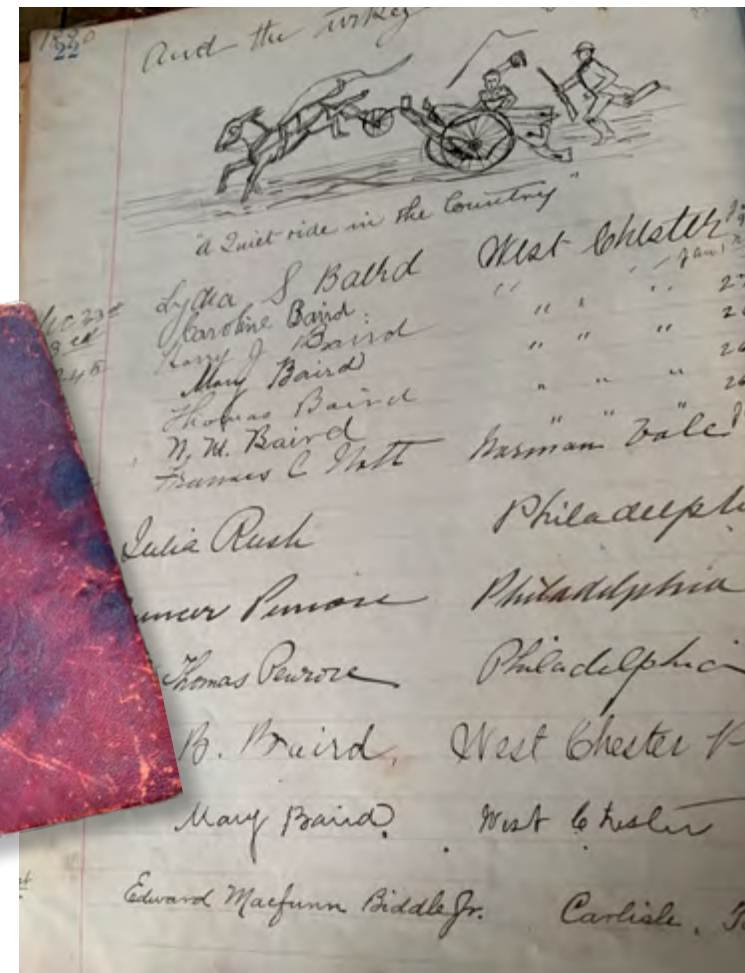 1890
22
And the turkey
"A Quiet ride in the Country"
Lydia S Baird West Chester
Caroline Baird " " "
Harry J. Baird " " "
Mary Baird " " "
Thomas Baird " " "
N. W. Baird " " "
Frances C Nott Norman Vale
Julia Rush Philadelph
Penrose Philadelphia
Thomas Penrose Philadelphia
B. Baird, West Chester P
Mary Baird. West Chester
Edward Macfunn Biddle Jr. Carlisle,